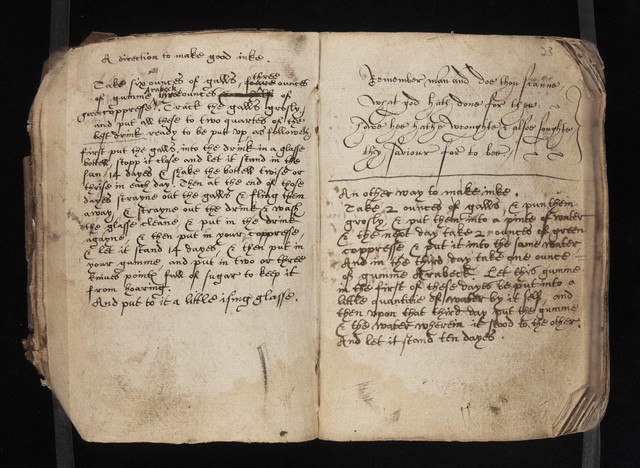 A direction to make good inke.
Take six ounces of galls, three ounces
of gumme Arabeck, ounces of
coppresse, Crack the galls grosly,
and put all these to two quartes of the
best drink ready to be put vp, as followeth
first put the galls into the drink in a glasse
bottell, stopp it close and let it stand in the
sun 14 dayes & shake the bottell twise or
thrise in each day. Then at the end of those
dayes strayne out the galls & fling them
away, & strayne out the drink & wash
the glasse cleane, & put in the drink
agayne, & then put in your coppresse
& let it stand 14 dayes, & then put in
your gumme, and put in two or three
knives points full of sugar to keep it
from hoaring.
And put to it a little ising glasse.
23
Remember man and doe thou scanne
what god hath done for thee.
have hee hathe wroughte & also soughte
thy saviour for to bee
An other way to make inke
Take 2 ounces of galls, & pun them
grosly, & put them into a pinte of water
& the next day take 2 ounces of green
coppresse & put it into the same water
And in the third day take one ounce
of gumme Arabeck. Let this gumme
in the first of these dayes be put into a
little quantitie of water by it self, and
then vpon that third day put the gumme
& the water wherein it stood to the other.
And let it stand ten dayes.